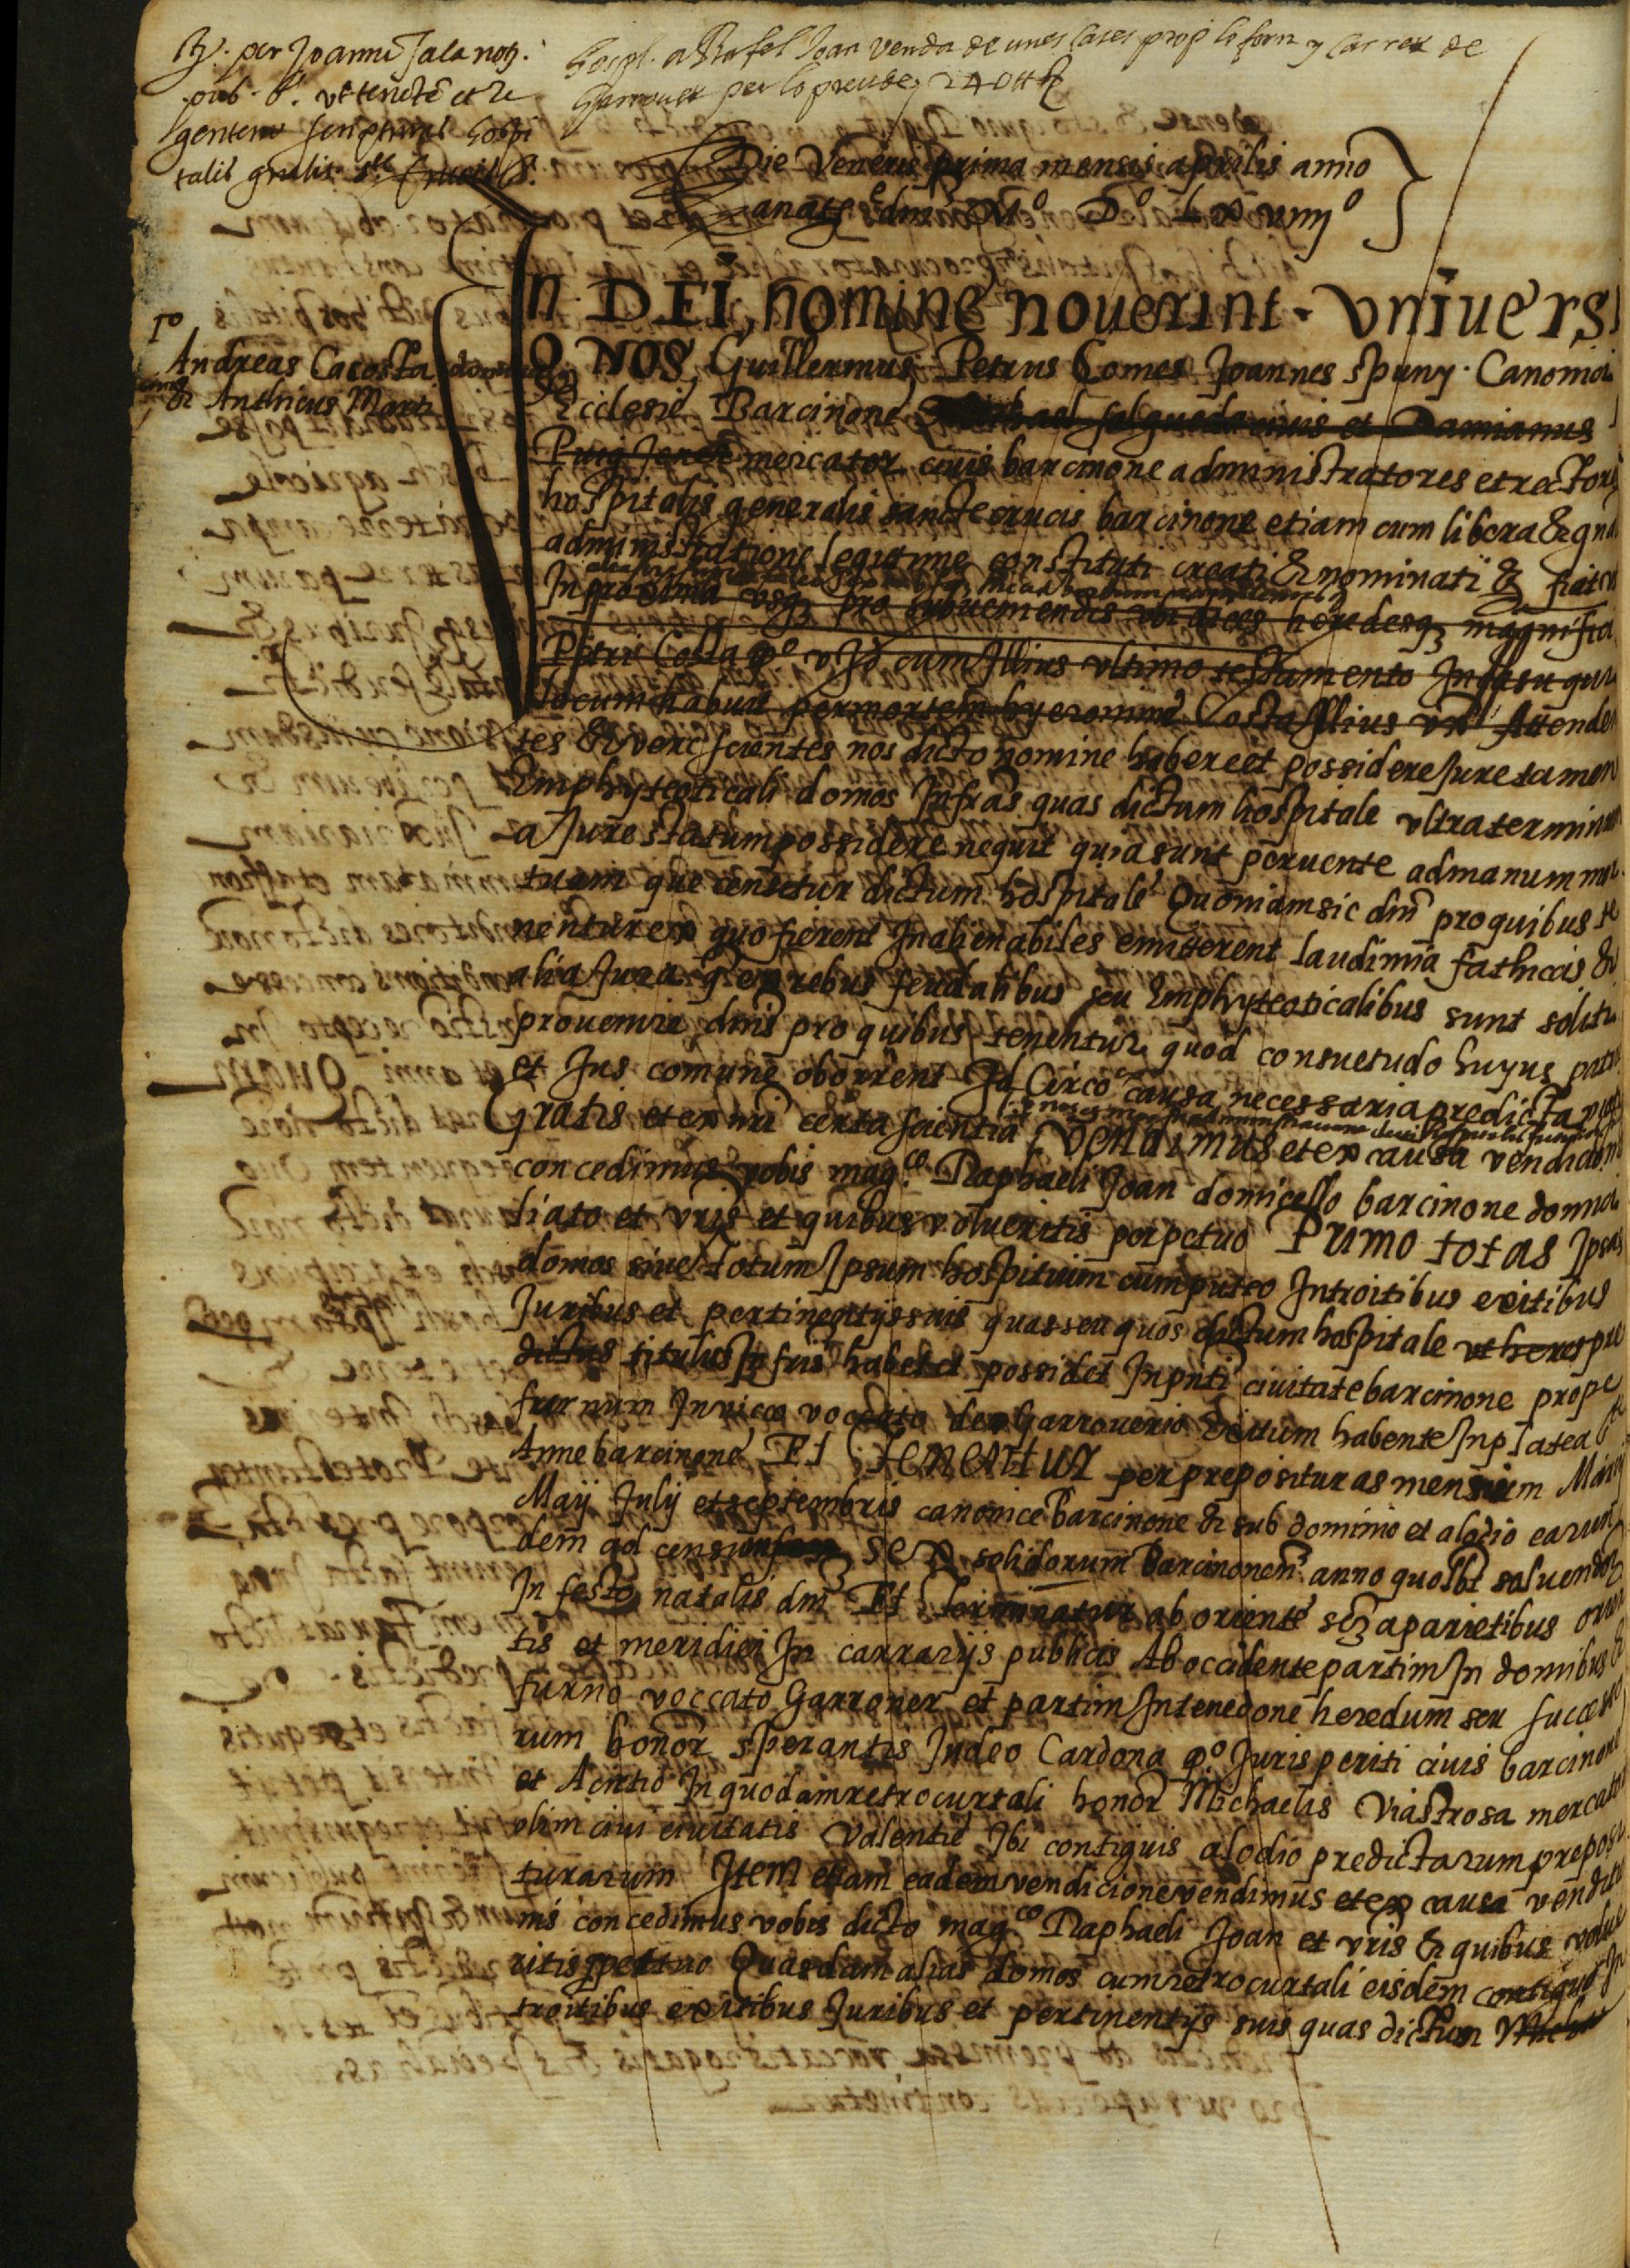 per Joannē Sala noṭ.
pub. B. vt tenetē et re
gentem scripturas hospi
talis gnalis. s.te Crucis B.
Hospl. a Rafel Joan venda de unes cases prop lo forn y carrer de
per lo preu de 240 ℔
Die Veneris prima mensis aprilis anno
a natẹ dni Mº Dº L x viiijº
In DEI, nomine noverint. Vniversi
Q NOS Guillermus Petrus Comes Joannes Spuny. Canonici
Iº
Andreas Cacosta
& Anthicus Marti
Ecclesie Barcinone et Damianus
Puig Jener mercator civis barcinone administratores et rectores
hospitalis generalis sancte crucis barcinone etiam cum libera & gnal
administratione legitime constituti creati & nominati &
In proxima usq3 pro subveniendis heredesq3 magnifici
Petri Costa qº V J d cum Illius ultimo testamento In casu quo
locum habuit per mortem hyeronimi Costa Illius Attenden
tes & vere scientes nos dicto nomine habere et possidere Jure tamen
Emphyteoticali domos Infras quas dictum hospitale ultra terminum
a Jure statum possidere nequit quia sunt pervente ad manum mor
tuam que censetur dictum hospitale Quoniam sic dni pro quibus te
nentur ex quo fierent Inalienabiles emitterent laudimia fathicas &
alia Jura q ex rebus feudalibus seu Emphyteoticalibus sunt soliti
provenire dnis pro quibus tenentur quod consuetudo huyus patrie
et Jus comune oborrent Id Circo causa necessaria predicta
Gratis et ex nri certa scientia Vendimus et ex causa vendicionis
concedimus vobis mag.co Raphaeli Joan domicello barcinone domici
liato et vris et quibus volueritis perpetuo Primo totas Ipsas
domos sive totum Ipsum hospitium cum puteo Introitibus exitibus
Juribus et pertinentijs suis quas seu quos dictum hospitale ut heres pre
dictus titulis Infris habet et possidet In pnti civitate barcinone prope
furnum In vico vocato den Garroverio exitum habente In platea Ste
Anne barcinone Et Tenentur per preposituras mensium Marcij
Maij July et septembris canonice Barcinone & sub dominio et alodio earun
dem ad censum sex solidorum Barcinonen anno quolbt solvendoꝝ
In festo natalis dni Et Terminatur ab oriente se3 a parietibus orien
tis et meridiei In carrarijs publicis Ab occidente partim In domibus &
furno voccato Garroner et partim In tenedone heredum seu successo
rum honor. Sperantis Indeo Cardona qº Jurisperiti civis barcinone
et Acirtio In quodam retrocurtali honor. Michaelis Viastrosa mercatoris
olim civi civitatis Valentie Ibi contiguis alodio predictarum preposi
turarum Item etiam eadem vendicione vendimus et ex causa vendicio
nis concedimus vobis dicto mag.co Raphaeli Joan et vris & quibus volue
ritis ppetuo Quasdam alias domos cum retrocurtali eisdem contiguo In
troitibus exitibus Juribus et pertinentijs suis quas dictum